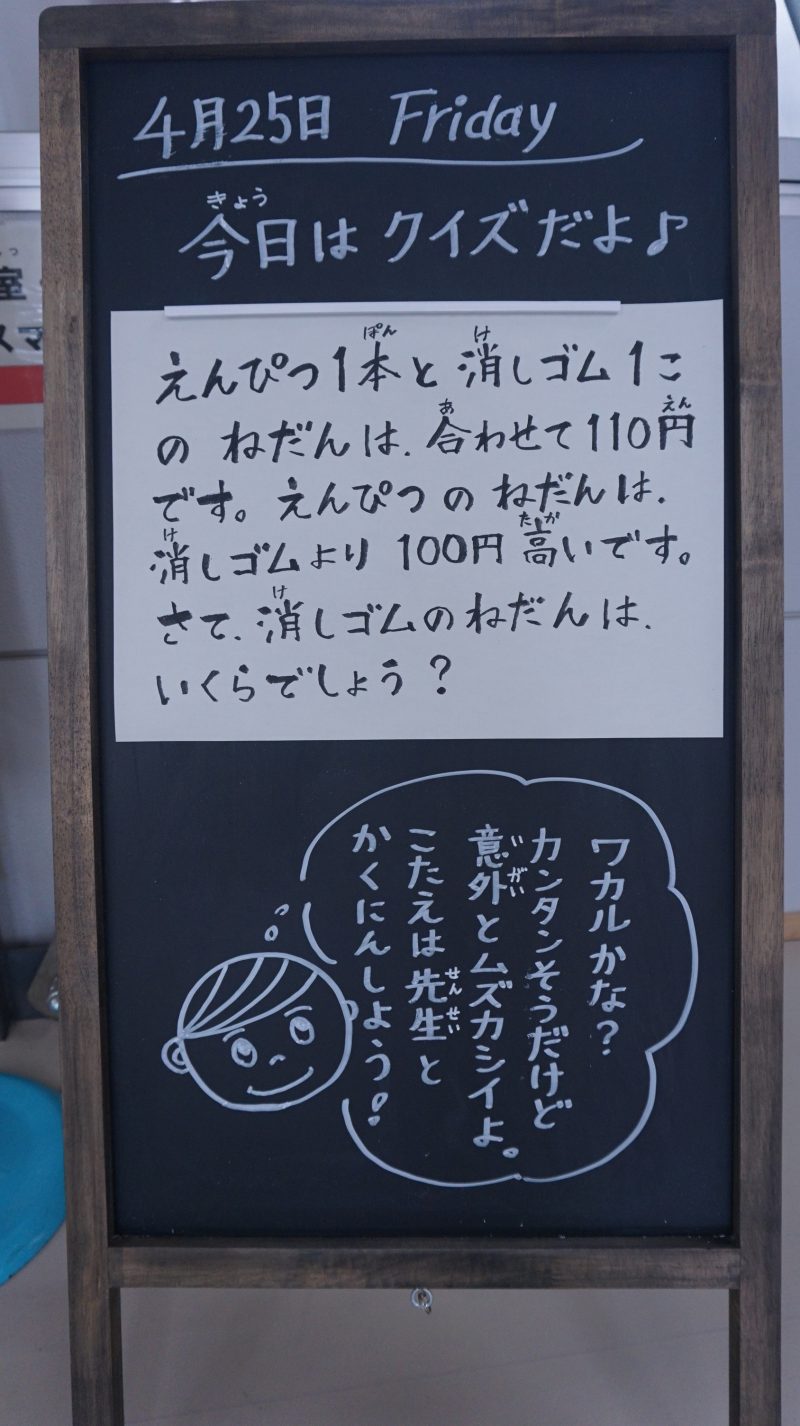 4月25日 Friday
きょう
今日は クイズだよ♪
ぽん け
えんぴつ1本と 消しゴム1こ
あ えん
の ねだんは、合わせて110円
です。えんぴつの ねだんは、
け たか
消しゴムより 100円 高いです。
け
さて、消しゴムのねだんは、
いくらでしょう?
ワカルかな?
カンタンそうだけど
いがい
意外とムズカシイよ。
せんせい
こたえは先生と
かくにんしよう!
室
スマ